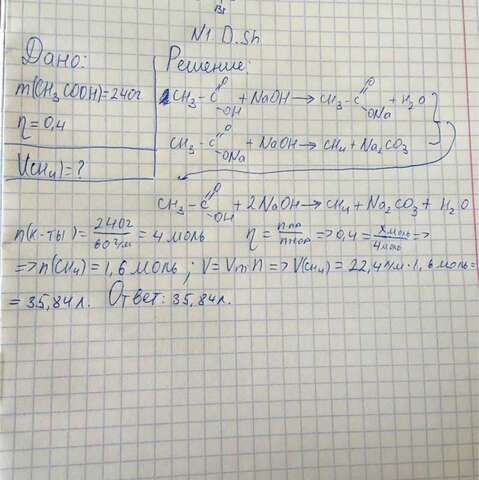 N1 D.sh
Дано:
m(CH₃COOH)=240г
η=0,4
V(CH₄)=?
Решение:
CH₃-C(=O)-OH + NaOH → CH₃-C(=O)-ONa + H₂O
CH₃-C(=O)-ONa + NaOH → CH₄ + Na₂CO₃
CH₃-C(=O)-OH + 2NaOH → CH₄ + Na₂CO₃ + H₂O
n(к-ты) = 240г / 60 г/м = 4 моль η = nпр / nтеор => 0,4 = x моль / 4 моль =>
=> n(CH₄) = 1,6 моль; V=Vm·n => V(CH₄) = 22,4 л/м · 1,6 моль=
= 35,84л. Ответ: 35,84л.